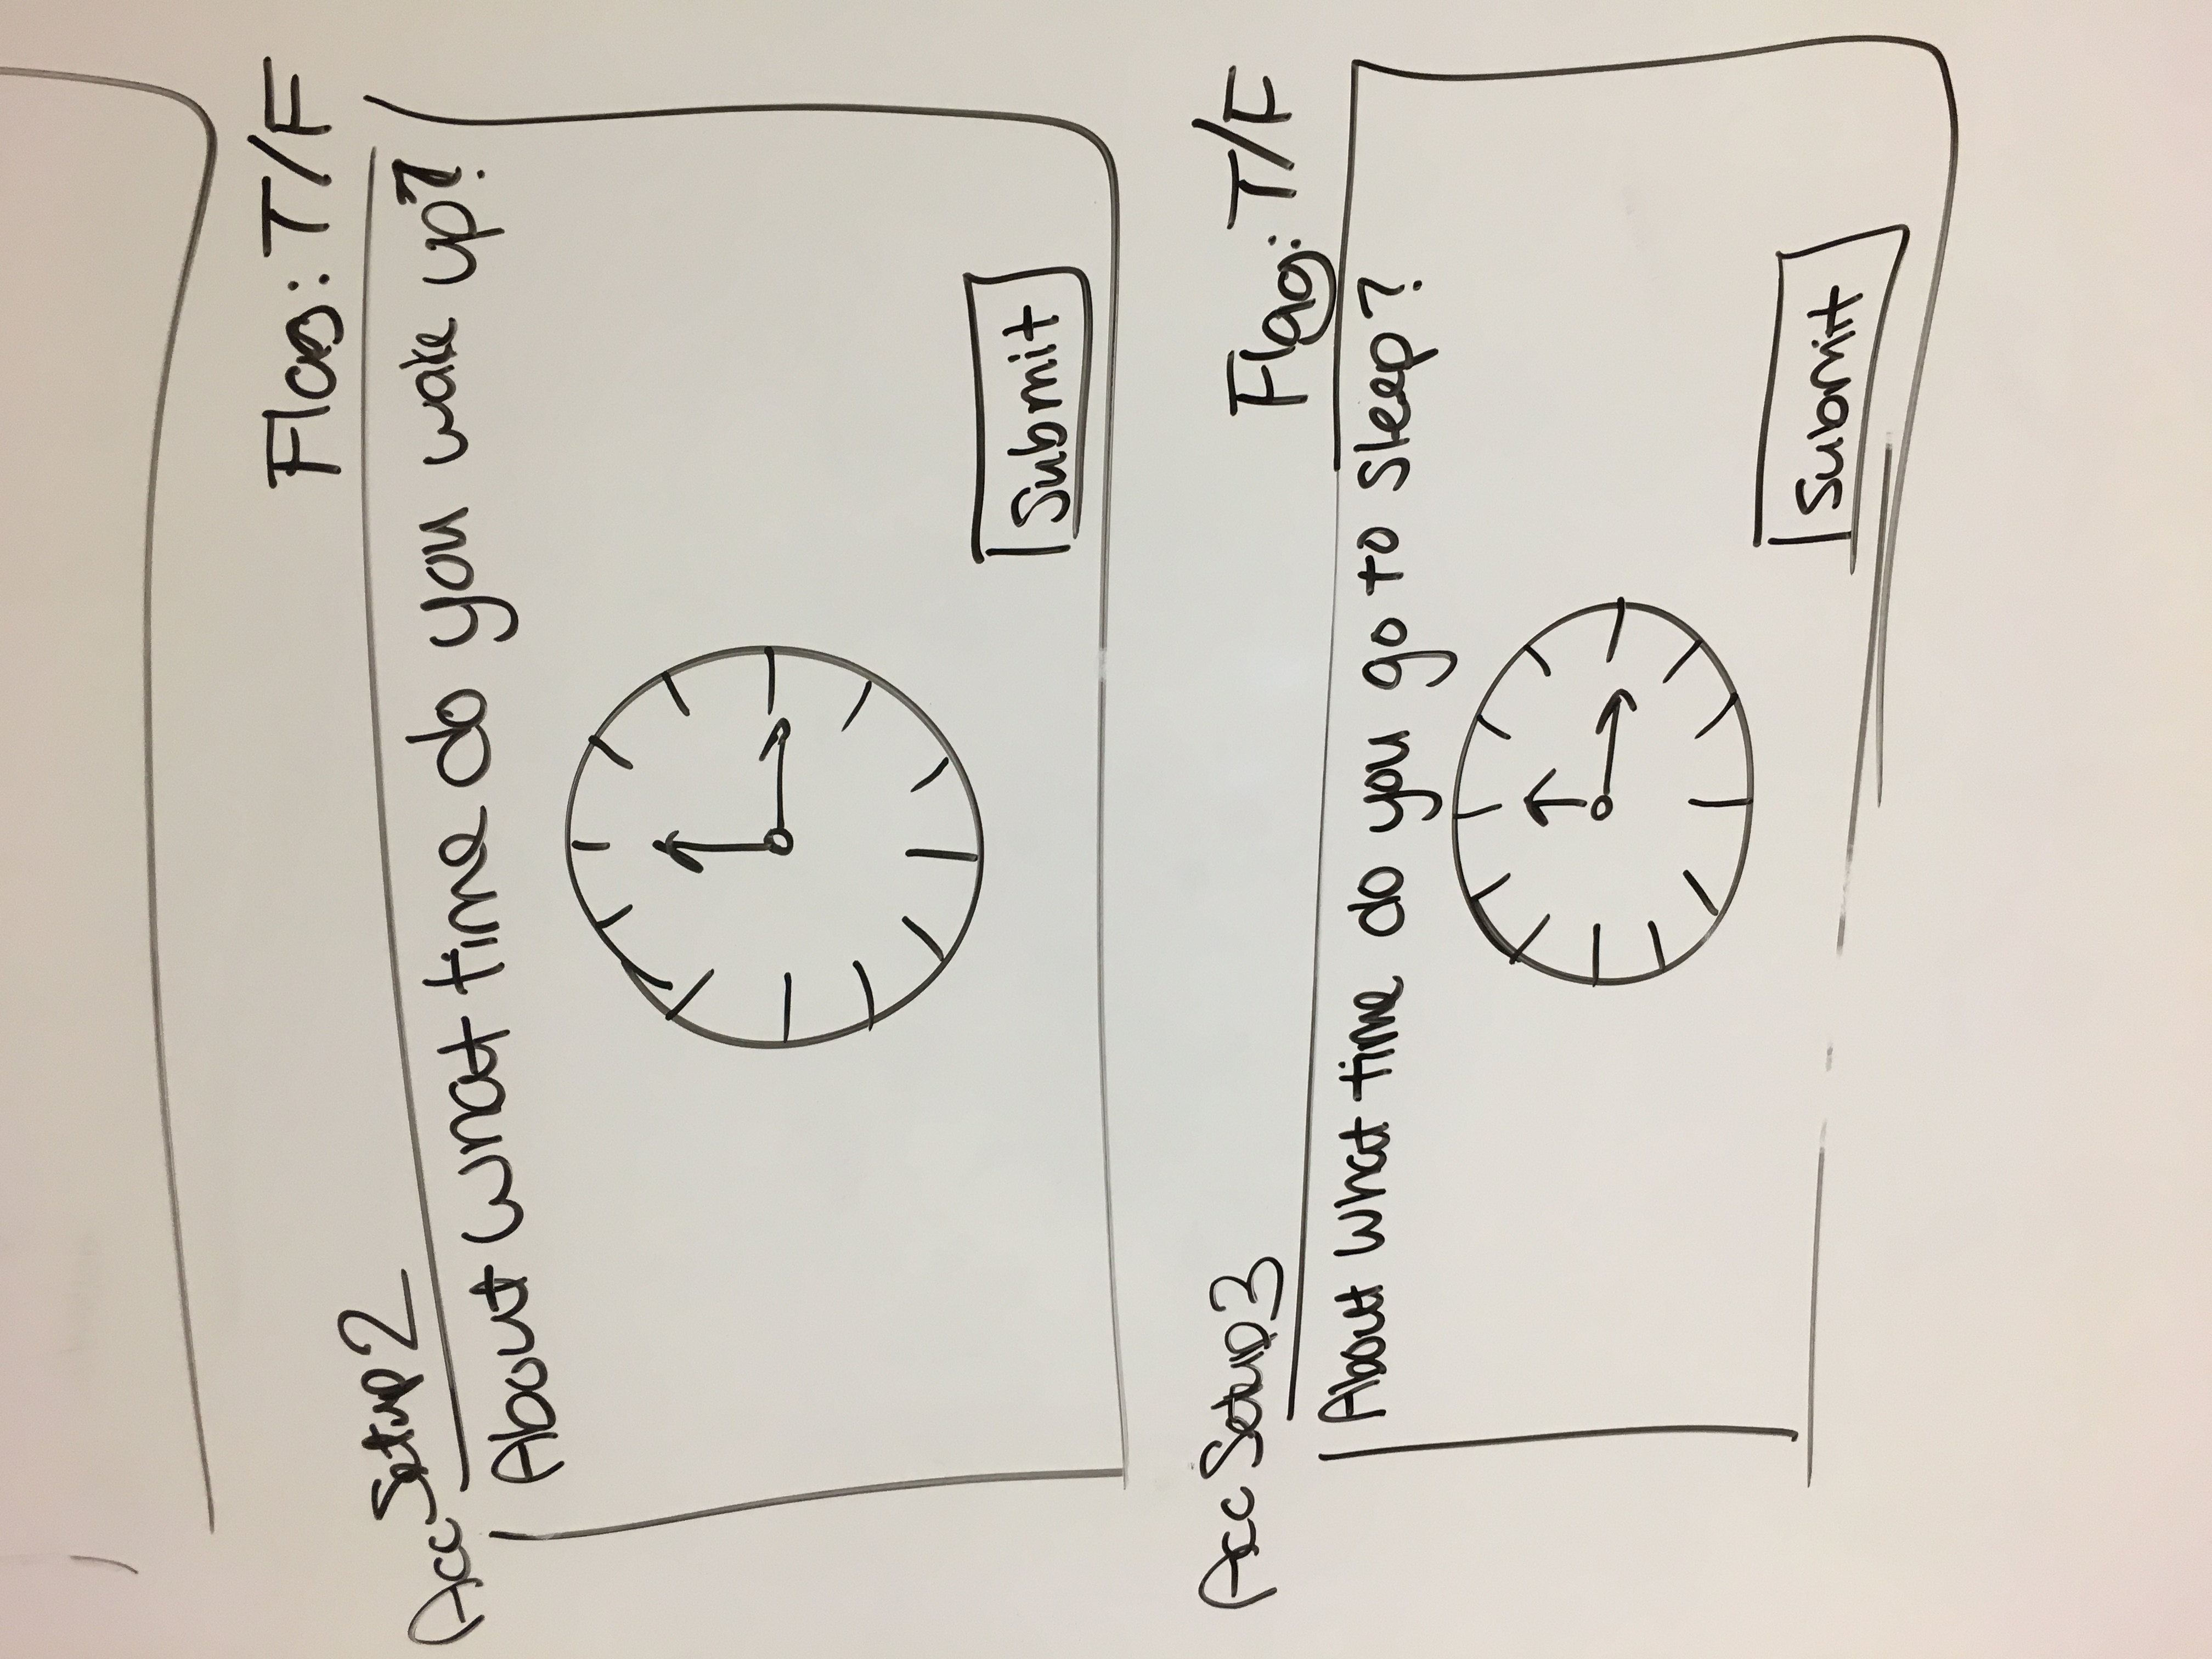 Flag: T/F
Acc Setup 2
About what time do you wake up?
Submit
Acc Setup 3
Flag: T/F
About what time do you go to sleep?
Submit